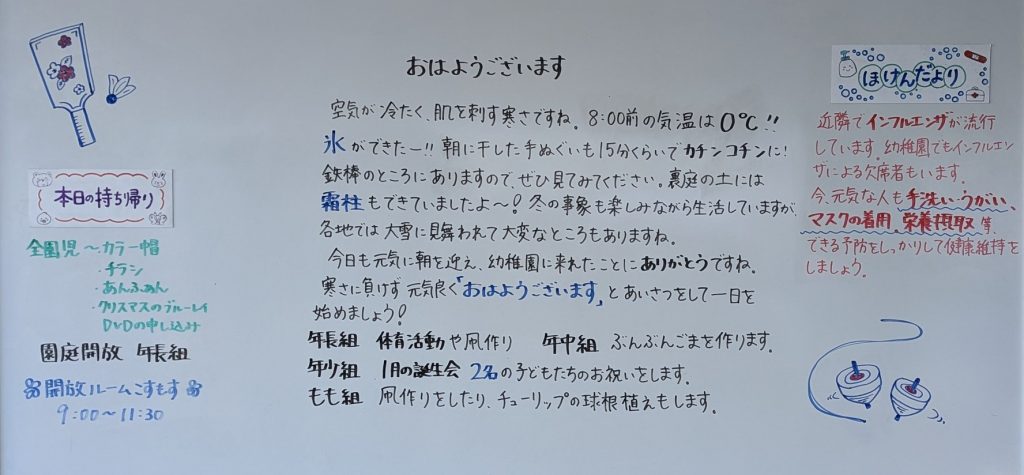 おはようございます
空気が冷たく、肌を刺す寒さですね。8:00前の気温は0℃!!
氷ができたー!!朝に干した手ぬぐいも15分くらいでカチンコチンに!
鉄棒のところにありますので、ぜひ見てみてください。裏庭の土には
霜柱もできていましたよ~!冬の事象も楽しみながら生活していますが、
各地では大雪に見舞われて大変なところもありますね。
今日も元気に朝を迎え、幼稚園に来れたことにありがとうですね。
寒さに負けず元気良く「おはようございます」とあいさつをして一日を
始めましょう!
年長組 体育活動や凧作り 年中組 ぶんぶんごまを作ります。
年少組 1月の誕生会 2名の子どもたちのお祝いをします。
もも組 凧作りをしたり、チューリップの球根植えもします。
本日の持ち帰り
全園児~カラー帽
・チラシ
・あんふぁん
・クリスマスのブルーレイ
DVDの申し込み
園庭開放 年長組
開放ルームこすもす
9:00~11:30
ほけんだより
近隣でインフルエンザが流行
しています。幼稚園でもインフルエン
ザによる欠席者もいます。
今、元気な人も手洗い・うがい、
マスクの着用、栄養摂取等、
できる予防をしっかりして健康維持を
しましょう。